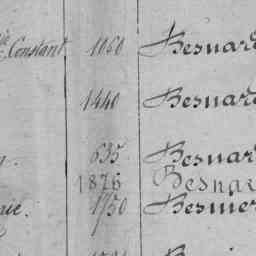 Constant 1060 Besnard
1440 Besnard
635 Besnard
1876 Besnar
1750 Besnier